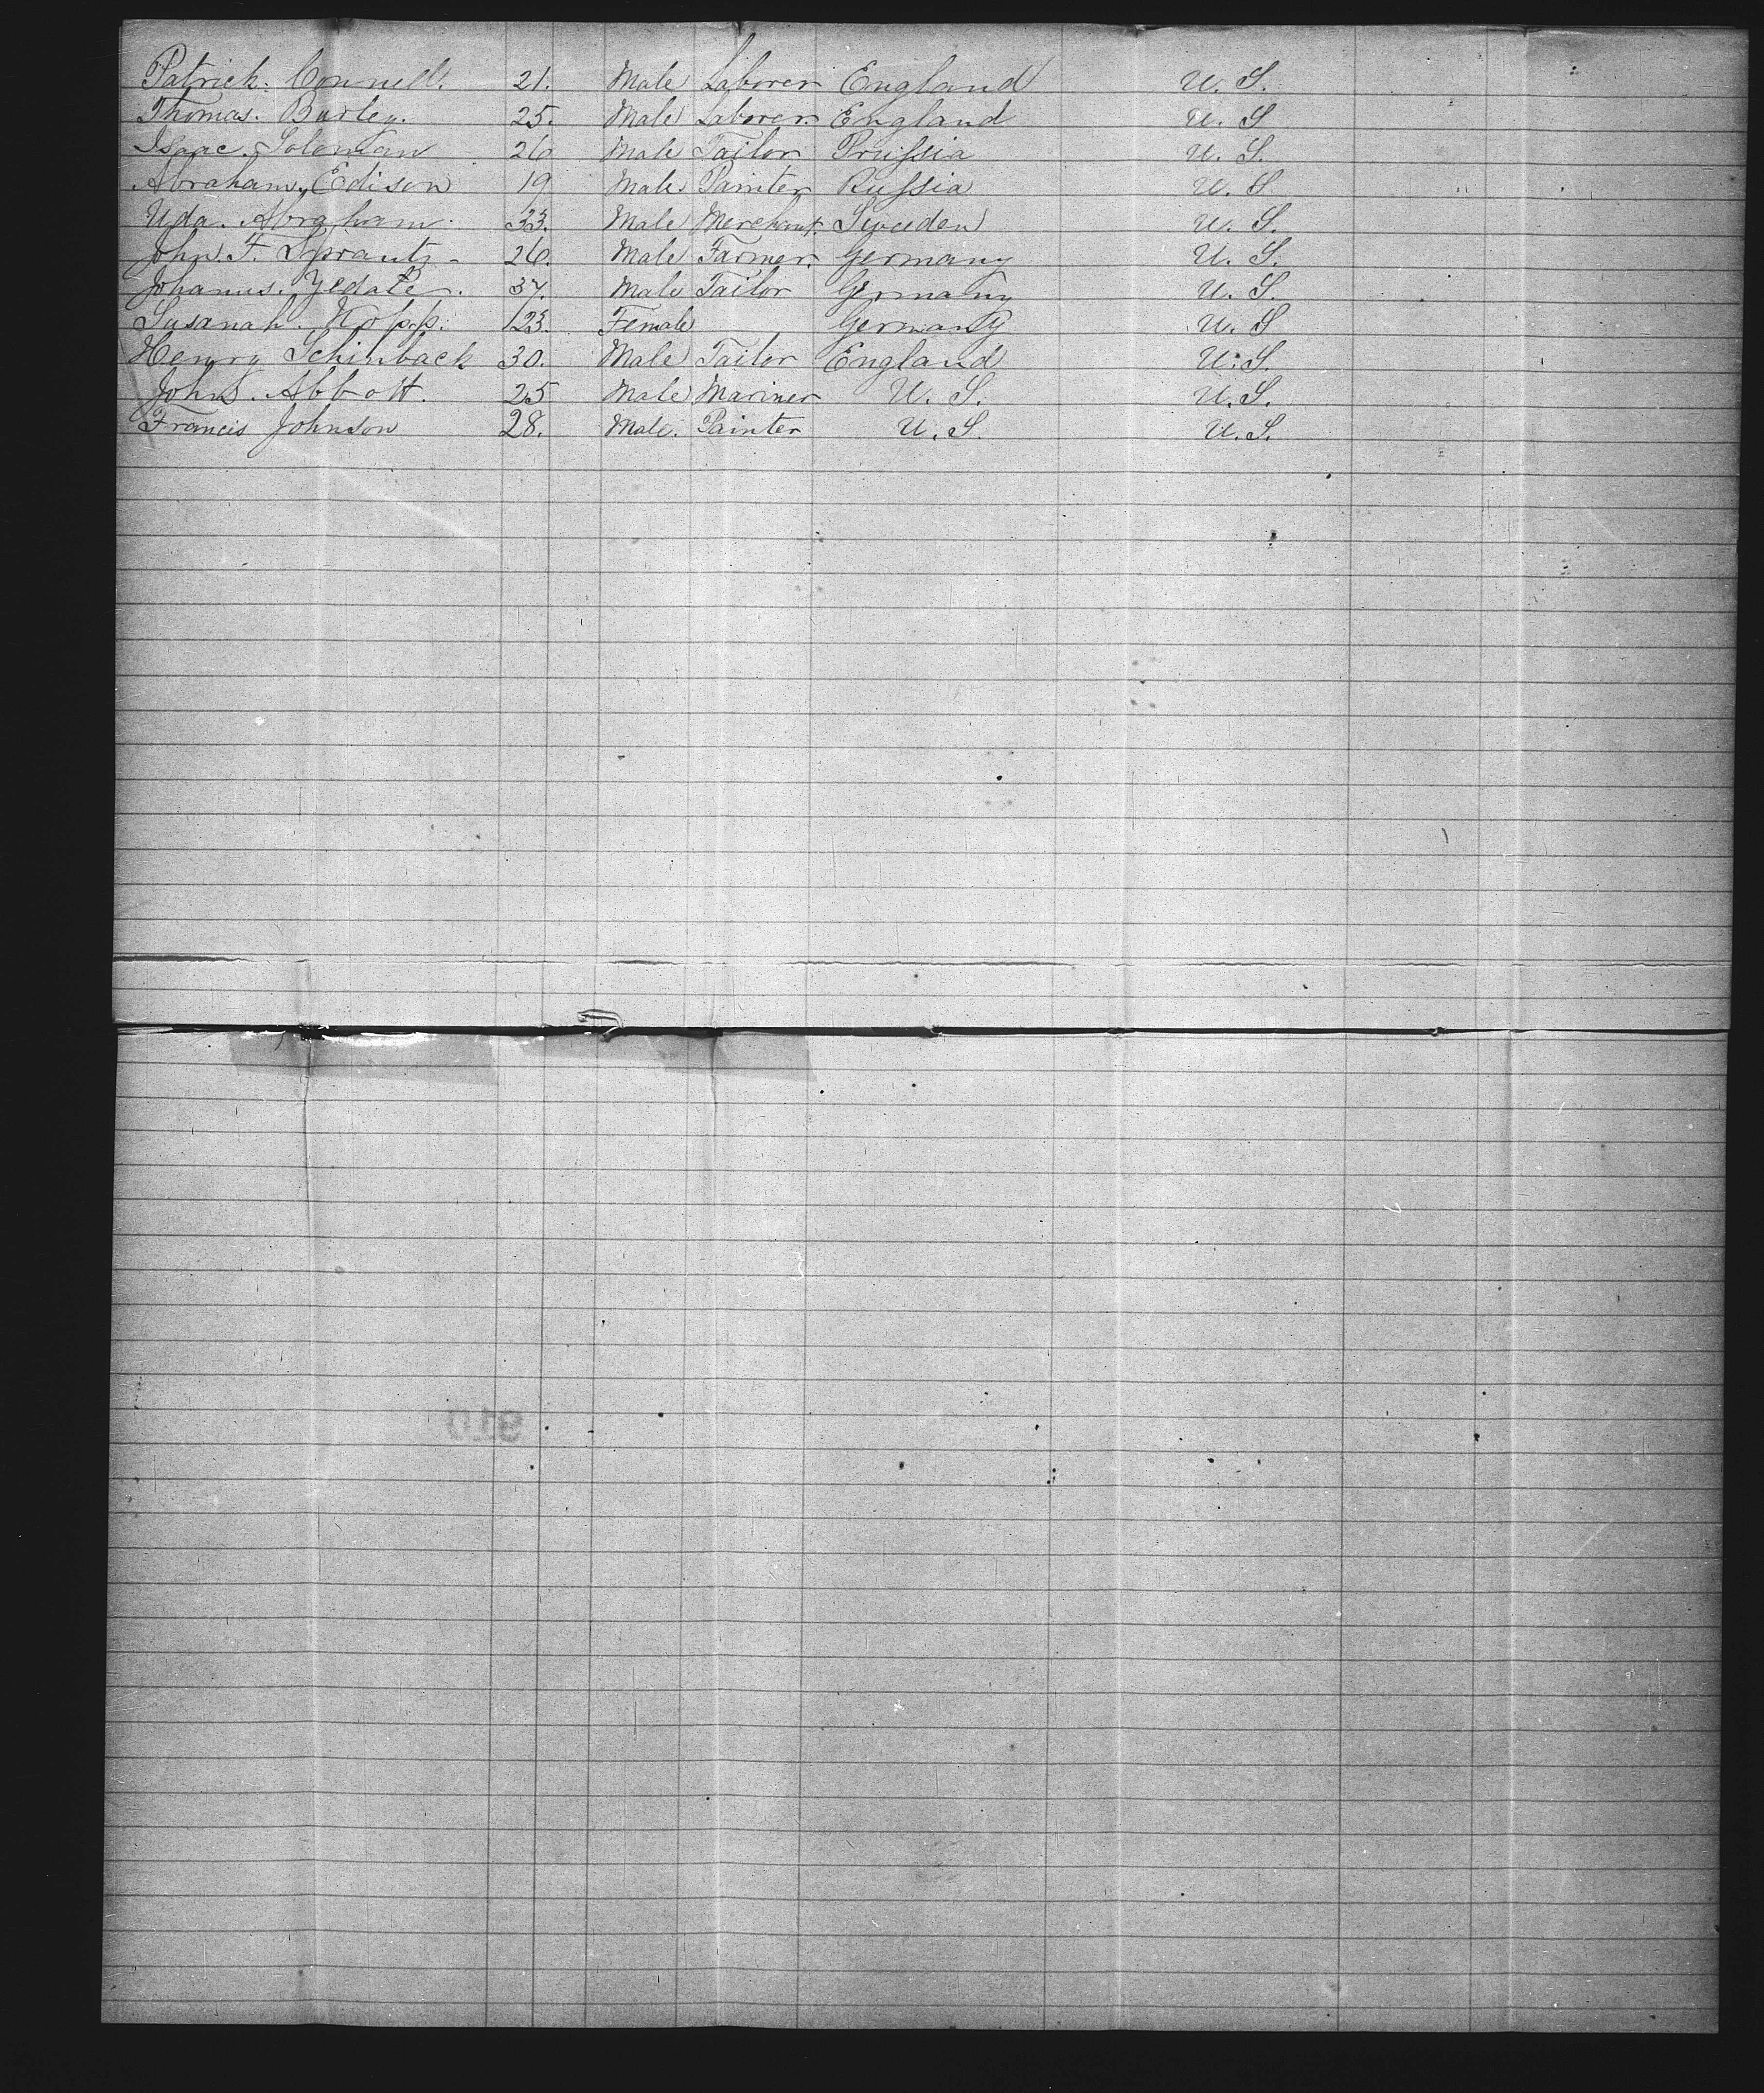 Patrick. Connell. 21. Male Laborer England U. S.
Thomas. Burley. 25. Male Laborer. England U. S
Isaac. Soloman 26 Male Tailor Prussia U. S.
Abraham. Edison 19 Male Painter Russia U. S
Uda. Abraham. 33. Male Merchant. Sweeden U. S.
John F. Sprautz - 26. Male Farmer. Germany U. S.
Johanus. 37. Male Tailor Germany U. S.
Susanah. Kopp. 23. Female Germany U. S
Henry Schinback 30. Male Tailor England U. S.
John S. Abbott. 25 Male Mariner U. S. U. S.
Francis Johnson 28. Male. Painter U. S. U. S.
910